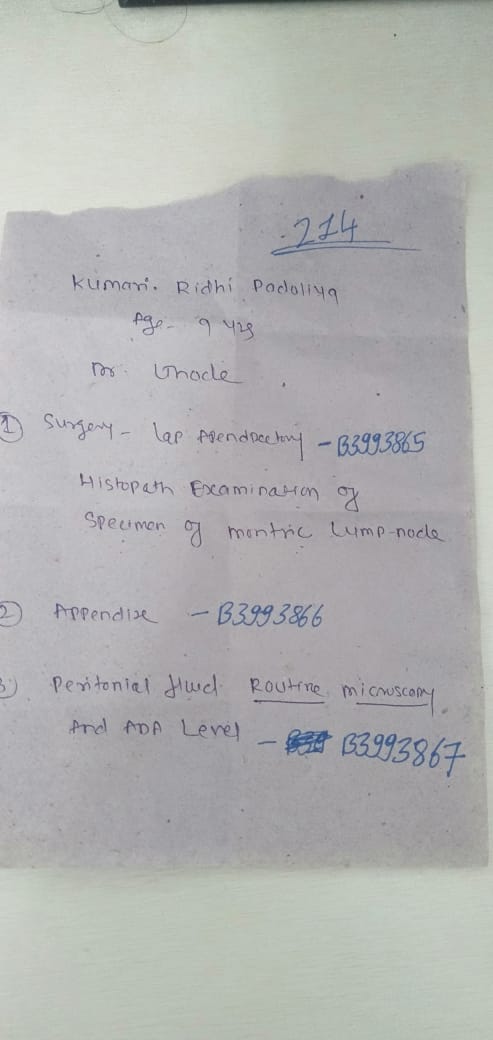 214
Kumari. Ridhi Padoliya
Age - 9 yrs
Dr. Dhocle
① Surgery - lap Apendectony - B3993865
Histopath Examination of
Specimen of montric lymp-node
② Appendix - B3993866
3) Peritonial fluid Routine microscopy
And ADA Level - B3993867